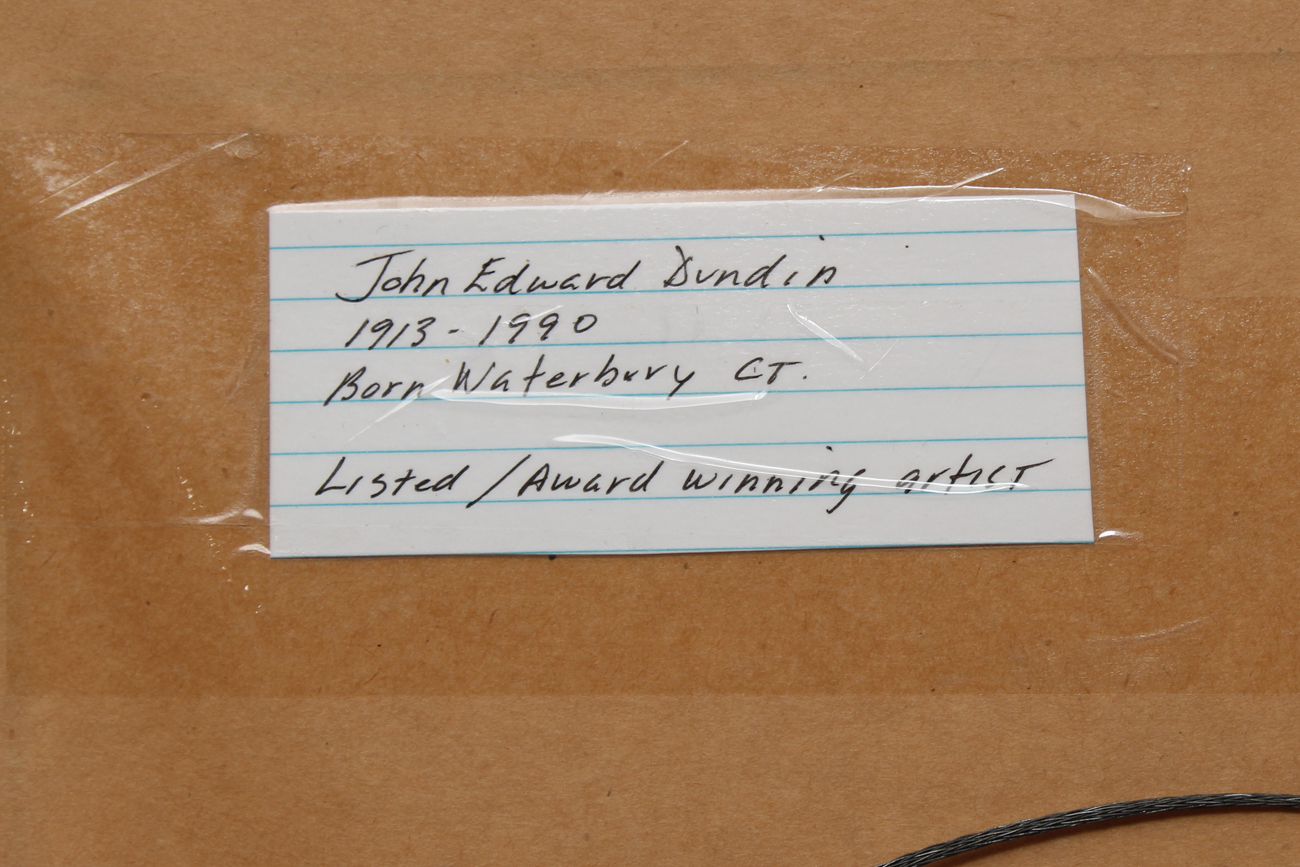 John Edward Dundin
1913 - 1990
Born Waterbury CT.
Listed / Award winning artist